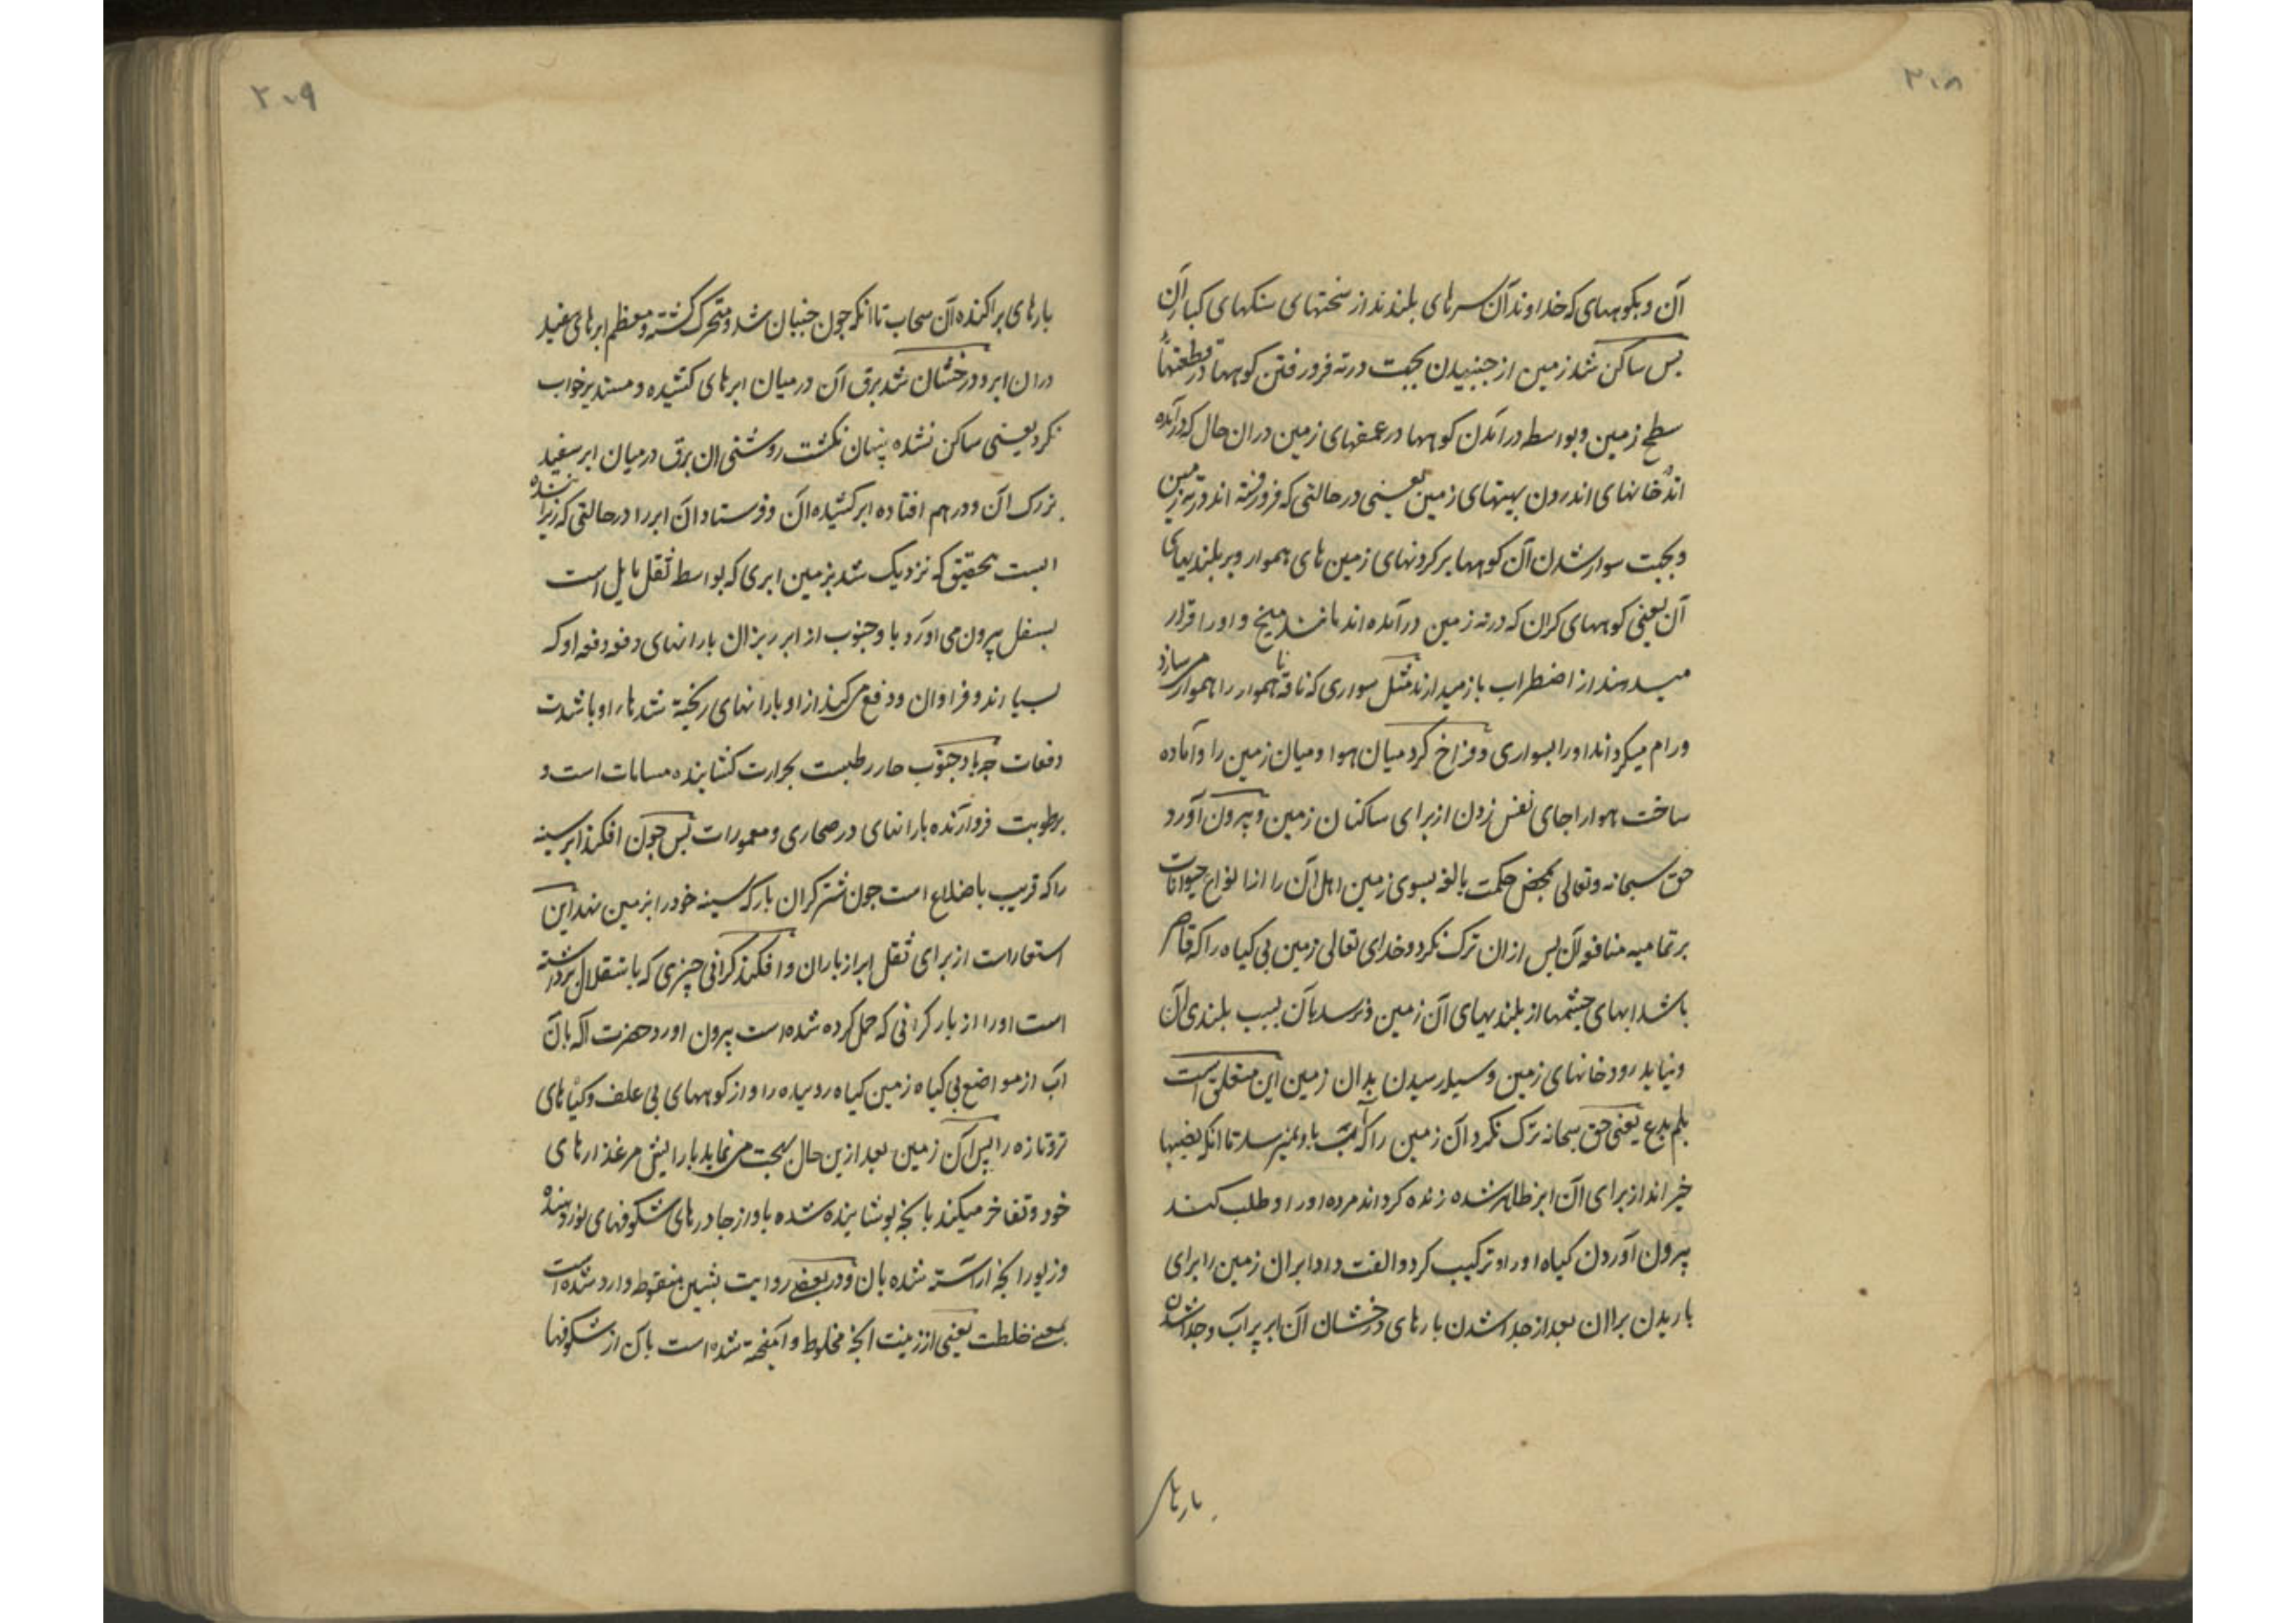 ۲۰۸
آن و بکوههای که خداوند آن سرهای بلندند از سختهای سنکهای کبار آن
بس ساکن شد زمین از جنبیدن بجهت در ته فرو رفتن کوهها در قطعتهاء
سطح زمین و بواسط در آمدن کوهها در عمقهای زمین در ان حال که در آمده
اند خانهای اندرون بینیهای زمین یعنی در حالتی که فرو رفته اند در ته زمین
و بجهت سوار شدن آن کوهها بر کردنهای زمین های هموار و بر بلندیهای
آن یعنی کوههای کران که در ته زمین در آمده اند مانند میخ و او را قرار
میدهند از اضطراب باز میدارند مثل سواری که ناقه نا هموار را هموار می سازد
و رام میکرداند او را بسواری و فراخ کرد میان هوا و میان زمین را و آماده
ساخت هوا را جای نفس زدن از برای ساکنان زمین و پیرون آورد
حق سبحانه و تعالی بمحض حکمت بالغه بسوی زمین اهل آن را از انواع حیوانات
بر تمامیه منافع آن بس از ان ترک نکرد و خدای تعالی زمین بی کیاه را که قاصر
باشد ابهای چشمها از بلندیهای آن زمین و نرسد بآن بسبب بلندی آن
و نیابد رودخانهای زمین وسیله رسیدن بدان زمین این متعلق است
بلم یدع یعنی حق سبحانه ترک نکرد آن زمین را که آب باو نمیرسد تا انکه
خیراند از برای آن ابر ظاهر شده زنده کرداند مرده او را و طلب کند
پیرون آوردن کیاه او را و ترکیب کرد و الفت داد ابر ان زمین را برای
باریدن بر ان بعد از جدا شدن بارهای درخشان آن ابر پر آب و جدا شدن
بارهای
۲۰۹
بارهای پراکنده آن سحاب تا انکه چون جنبان شد و متحرک کشته و معظم ابرهای سفید
در ان ابر و درخشان شد برق آن در میان ابرهای کشیده و مستدیر خواب
نکرد یعنی ساکن نشده پنهان نکشت روشنی ان برق در میان ابر سفید
بزرک ان و در هم افتاده ابر کشیده آن و فرستاد ان ابر را در حالتی که
است بتحقیق که نزدیک شد بزمین ابری که بواسط ثقل مایل است
بسفل پیرون می اورد باد جنوب از ابر ریزان بارانهای دفعه دفعه او که
بسیارند و فراوان و دفع می کند از او بارانهای ریخته شدهای او با شدت
دفعات چه باد جنوب حار رطبست بحرارت کشاینده مسامات است و
برطوبت فرو آرنده بارانهای در صحاری و معمورات بس چون افکند ابر سینه
را که قریب باضلاع است چون شتر کران بار که سینه خود را بزمین نهد این
استعارست از برای ثقل ابر از باران و افکند کرانی چیزی که باستقلال برداشته
است او را از بار کرانی که حمل کرده شده است پیرون اورد حضرت اله بآن
اب از مواضع بی کیاه زمین کیاه روییده را و از کوههای بی علف و کیاهای
تر و تازه را پس آن زمین بعد از ین حال بهجت می نماید بارایش مرغزارهای
خود و تفاخر میکند بانچه پوشاینده شده باو از جادرهای شکوفهای نوردهنده
و زیور انچه اراسته شده بان و در بعضی روایت بشین منقوط وارد شده است
بمعنی خلطت یعنی از زینت انچه مخلوط و آمیخته شده است بآن از شکوفها